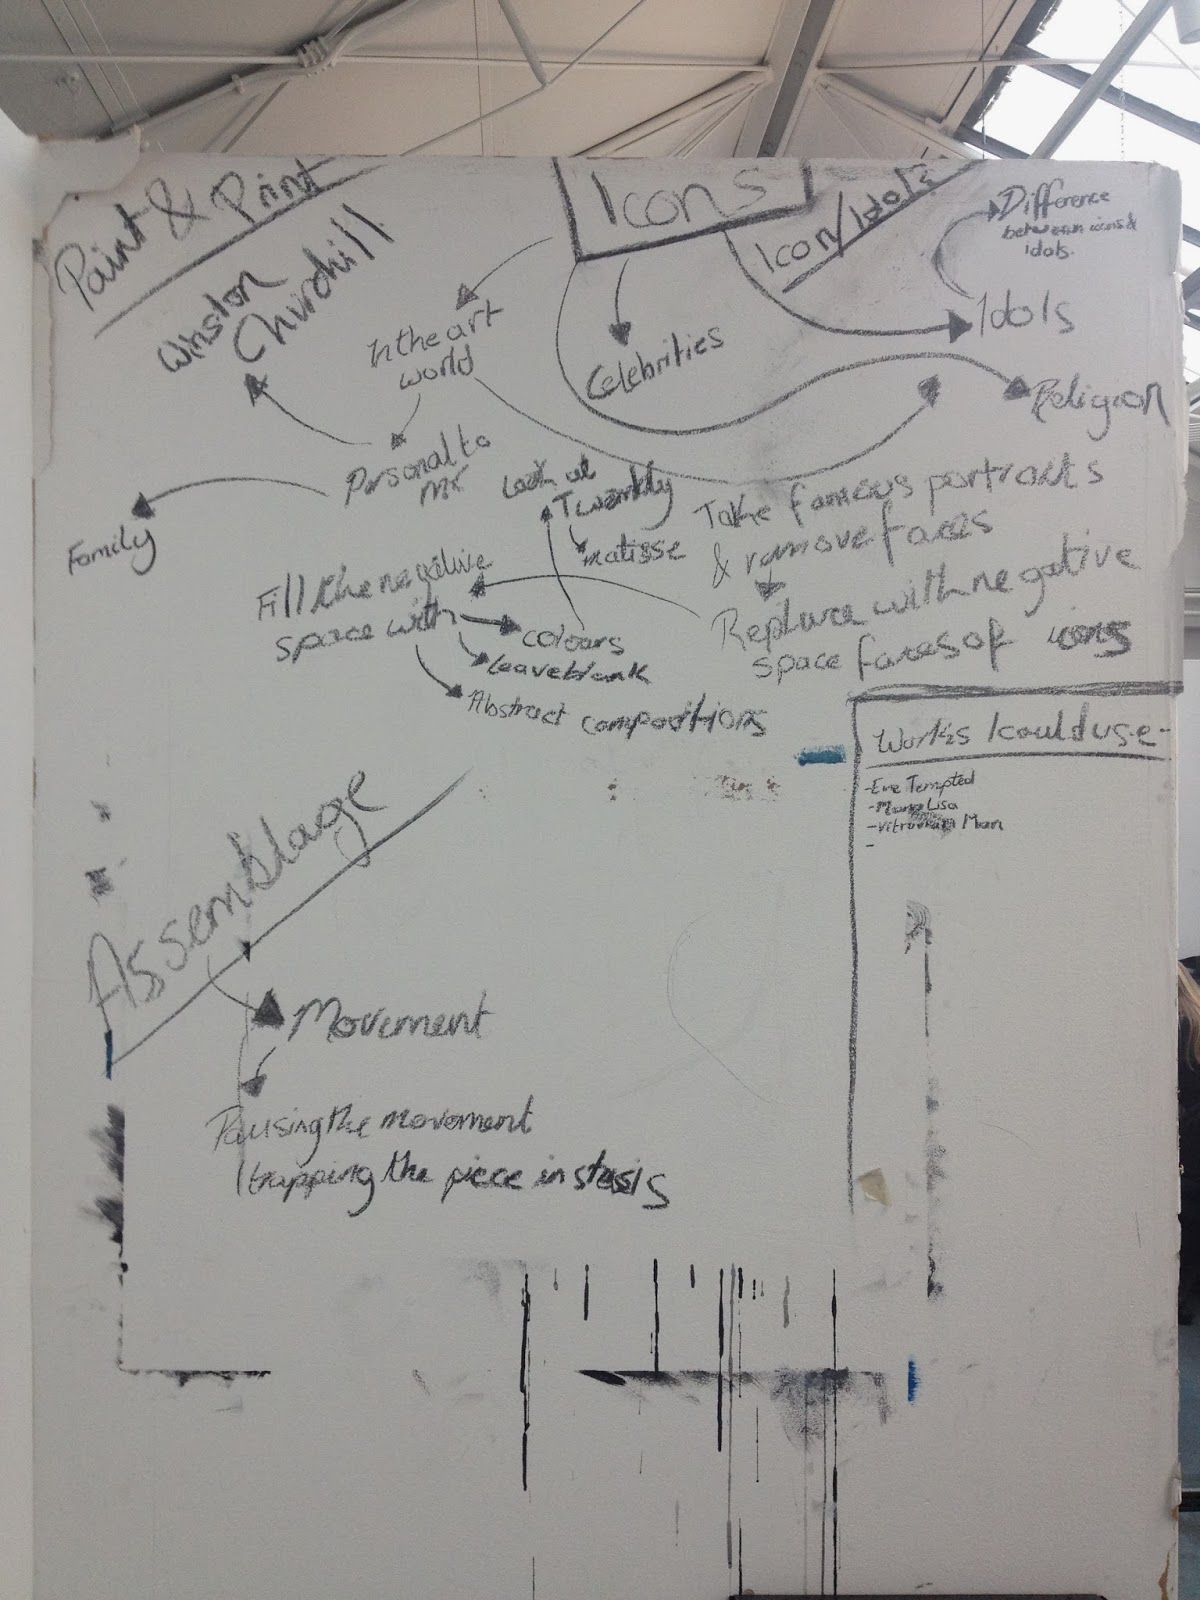 Paint & Print
Icons
Icon/Idols
Difference
between icons &
idols.
Winston
Churchill
In the art
world
Celebrities
Idols
Religion
Personal to
me
Family
Look at
Twombly
matisse
Take famous portraits
& remove faces
Replace with negative
space faces of icons
Fill the negative
space with
colours
leave blank
Abstract compositions
Works I could use -
-Eve Tempted
-Mona Lisa
-Vitruvian Man
-
Assemblage
Movement
Pausing the movement
/trapping the piece in stasis